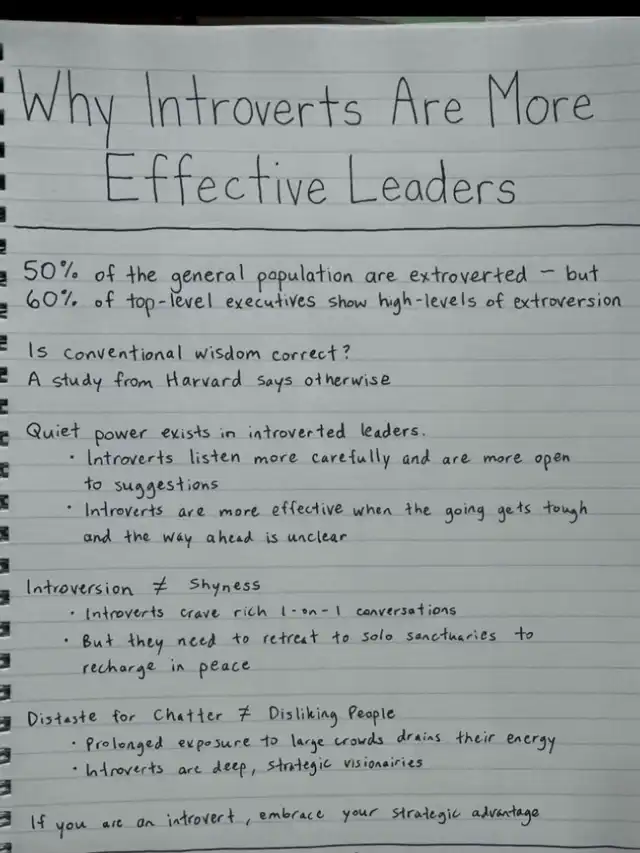 Why Introverts Are More
Effective Leaders
50% of the general population are extroverted – but
60% of top-level executives show high-levels of extroversion
Is conventional wisdom correct?
A study from Harvard says otherwise
Quiet power exists in introverted leaders.
· Introverts listen more carefully and are more open
to suggestions
· Introverts are more effective when the going gets tough
and the way ahead is unclear
Introversion ≠ Shyness
· Introverts crave rich 1-on-1 conversations
· But they need to retreat to solo sanctuaries to
recharge in peace
Distaste for Chatter ≠ Disliking People
· Prolonged exposure to large crowds drains their energy
· Introverts are deep, strategic visionairies
If you are an introvert, embrace your strategic advantage